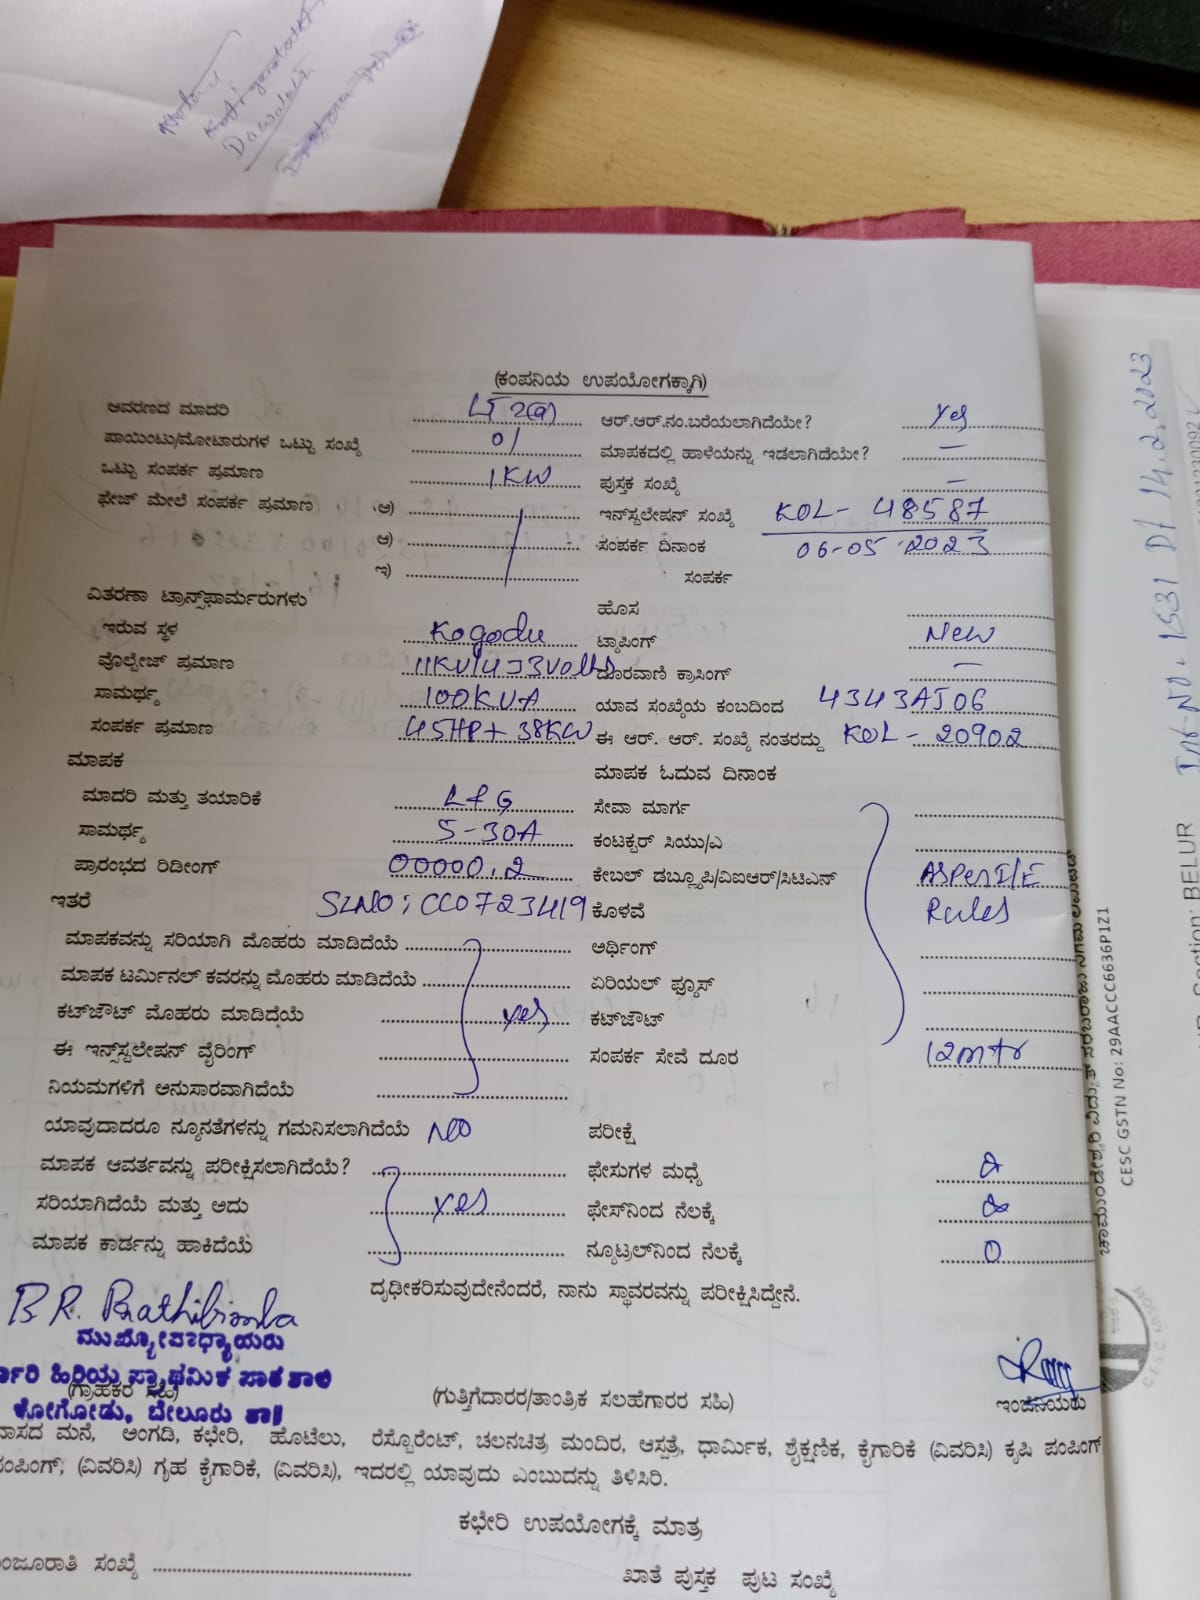 (ಕಂಪನಿಯ ಉಪಯೋಗಕ್ಕಾಗಿ)
ಆವರಣದ ಮಾದರಿ LT 2(a) ಆರ್.ಆರ್.ನಂ.ಬರೆಯಲಾಗಿದೆಯೇ? yes
ಪಾಯಿಂಟು/ಮೋಟಾರುಗಳ ಒಟ್ಟು ಸಂಖ್ಯೆ 01 ಮಾಪಕದಲ್ಲಿ ಹಾಳೆಯನ್ನು ಇಡಲಾಗಿದೆಯೇ? —
ಒಟ್ಟು ಸಂಪರ್ಕ ಪ್ರಮಾಣ 1KW ಪುಸ್ತಕ ಸಂಖ್ಯೆ —
ಫೇಜ್ ಮೇಲೆ ಸಂಪರ್ಕ ಪ್ರಮಾಣ ಅ) ಇನ್‌ಸ್ಟಲೇಷನ್ ಸಂಖ್ಯೆ KOL- 48587
ಆ) ಸಂಪರ್ಕ ದಿನಾಂಕ 06-05-2023
ಇ) ಸಂಪರ್ಕ
ವಿತರಣಾ ಟ್ರಾನ್ಸ್‌ಫಾರ್ಮರುಗಳು ಹೊಸ
ಇರುವ ಸ್ಥಳ Kogodu ಟ್ಯಾಪಿಂಗ್ New
ವೋಲ್ಟೇಜ್ ಪ್ರಮಾಣ ದೂರವಾಣಿ ಕ್ರಾಸಿಂಗ್ —
ಸಾಮರ್ಥ್ಯ 100KVA ಯಾವ ಸಂಖ್ಯೆಯ ಕಂಬದಿಂದ 4343AJ06
ಸಂಪರ್ಕ ಪ್ರಮಾಣ 45HP+ 38KW ಈ ಆರ್. ಆರ್. ಸಂಖ್ಯೆ ನಂತರದ್ದು KOL- 20902
ಮಾಪಕ ಮಾಪಕ ಓದುವ ದಿನಾಂಕ
ಮಾದರಿ ಮತ್ತು ತಯಾರಿಕೆ L&G ಸೇವಾ ಮಾರ್ಗ
ಸಾಮರ್ಥ್ಯ 5-30A ಕಂಟಕ್ಟರ್ ಸಿಯು/ಎ
ಪ್ರಾರಂಭದ ರಿಡೀಂಗ್ 00000.2 ಕೇಬಲ್ ಡಬ್ಲ್ಯೂಪಿ/ವಿಐಆರ್/ಸಿಟಿಎನ್ As Per I/E
ಇತರೆ SLNO: CC0723419 ಕೊಳವೆ Rules
ಮಾಪಕವನ್ನು ಸರಿಯಾಗಿ ಮೊಹರು ಮಾಡಿದೆಯೆ ಅರ್ಥಿಂಗ್
ಮಾಪಕ ಟರ್ಮಿನಲ್ ಕವರನ್ನು ಮೊಹರು ಮಾಡಿದೆಯೆ ಏರಿಯಲ್ ಫ್ಯೂಸ್
ಕಟ್‌ಔಟ್ ಮೊಹರು ಮಾಡಿದೆಯೆ yes ಕಟ್‌ಔಟ್
ಈ ಇನ್ಸ್‌ಸ್ಟಲೇಷನ್ ವೈರಿಂಗ್ ಸಂಪರ್ಕ ಸೇವೆ ದೂರ 12mtr
ನಿಯಮಗಳಿಗೆ ಅನುಸಾರವಾಗಿದೆಯೆ
ಯಾವುದಾದರೂ ನ್ಯೂನತೆಗಳನ್ನು ಗಮನಿಸಲಾಗಿದೆಯೆ NO ಪರೀಕ್ಷೆ
ಮಾಪಕ ಆವರ್ತವನ್ನು ಪರೀಕ್ಷಿಸಲಾಗಿದೆಯೆ? ಫೇಸುಗಳ ಮಧ್ಯೆ
ಸರಿಯಾಗಿದೆಯೆ ಮತ್ತು ಅದು yes ಫೇಸ್‌ನಿಂದ ನೆಲಕ್ಕೆ
ಮಾಪಕ ಕಾರ್ಡನ್ನು ಹಾಕಿದೆಯೆ ನ್ಯೂಟ್ರಲ್‌ನಿಂದ ನೆಲಕ್ಕೆ 0
ದೃಢೀಕರಿಸುವುದೇನೆಂದರೆ, ನಾನು ಸ್ಥಾವರವನ್ನು ಪರೀಕ್ಷಿಸಿದ್ದೇನೆ.
B R. Prathibimba
ಮುಖ್ಯೋಪಾಧ್ಯಾಯರು
ಹಿರಿಯ ಪ್ರಾಥಮಿಕ ಪಾಠಶಾಲೆ
(ಗ್ರಾಹಕರ ಸಹಿ) (ಗುತ್ತಿಗೆದಾರರ/ತಾಂತ್ರಿಕ ಸಲಹೆಗಾರರ ಸಹಿ) ಇಂಜಿನಿಯರು
ಕೋಗೋಡು, ಬೇಲೂರು ತಾ||
ವಾಸದ ಮನೆ, ಅಂಗಡಿ, ಕಛೇರಿ, ಹೊಟೆಲು, ರೆಸ್ಟೋರೆಂಟ್, ಚಲನಚಿತ್ರ ಮಂದಿರ, ಆಸ್ಪತ್ರೆ, ಧಾರ್ಮಿಕ, ಶೈಕ್ಷಣಿಕ, ಕೈಗಾರಿಕೆ (ವಿವರಿಸಿ) ಕೃಷಿ ಪಂಪಿಂಗ್
ಪಂಪಿಂಗ್, (ವಿವರಿಸಿ) ಗೃಹ ಕೈಗಾರಿಕೆ, (ವಿವರಿಸಿ), ಇದರಲ್ಲಿ ಯಾವುದು ಎಂಬುದನ್ನು ತಿಳಿಸಿರಿ.
ಕಛೇರಿ ಉಪಯೋಗಕ್ಕೆ ಮಾತ್ರ
ಮಂಜೂರಾತಿ ಸಂಖ್ಯೆ
ಖಾತೆ ಪುಸ್ತಕ ಪುಟ ಸಂಖ್ಯೆ
ಚಾಮುಂಡೇಶ್ವರಿ ವಿದ್ಯುತ್ ಸರಬರಾಜು ನಿಗಮ ಲಿಮಿಟೆಡ್
CESC GSTN No: 29AACCC6636P1Z1
Section: BELUR
No. 1531 Dt 14.2.2023